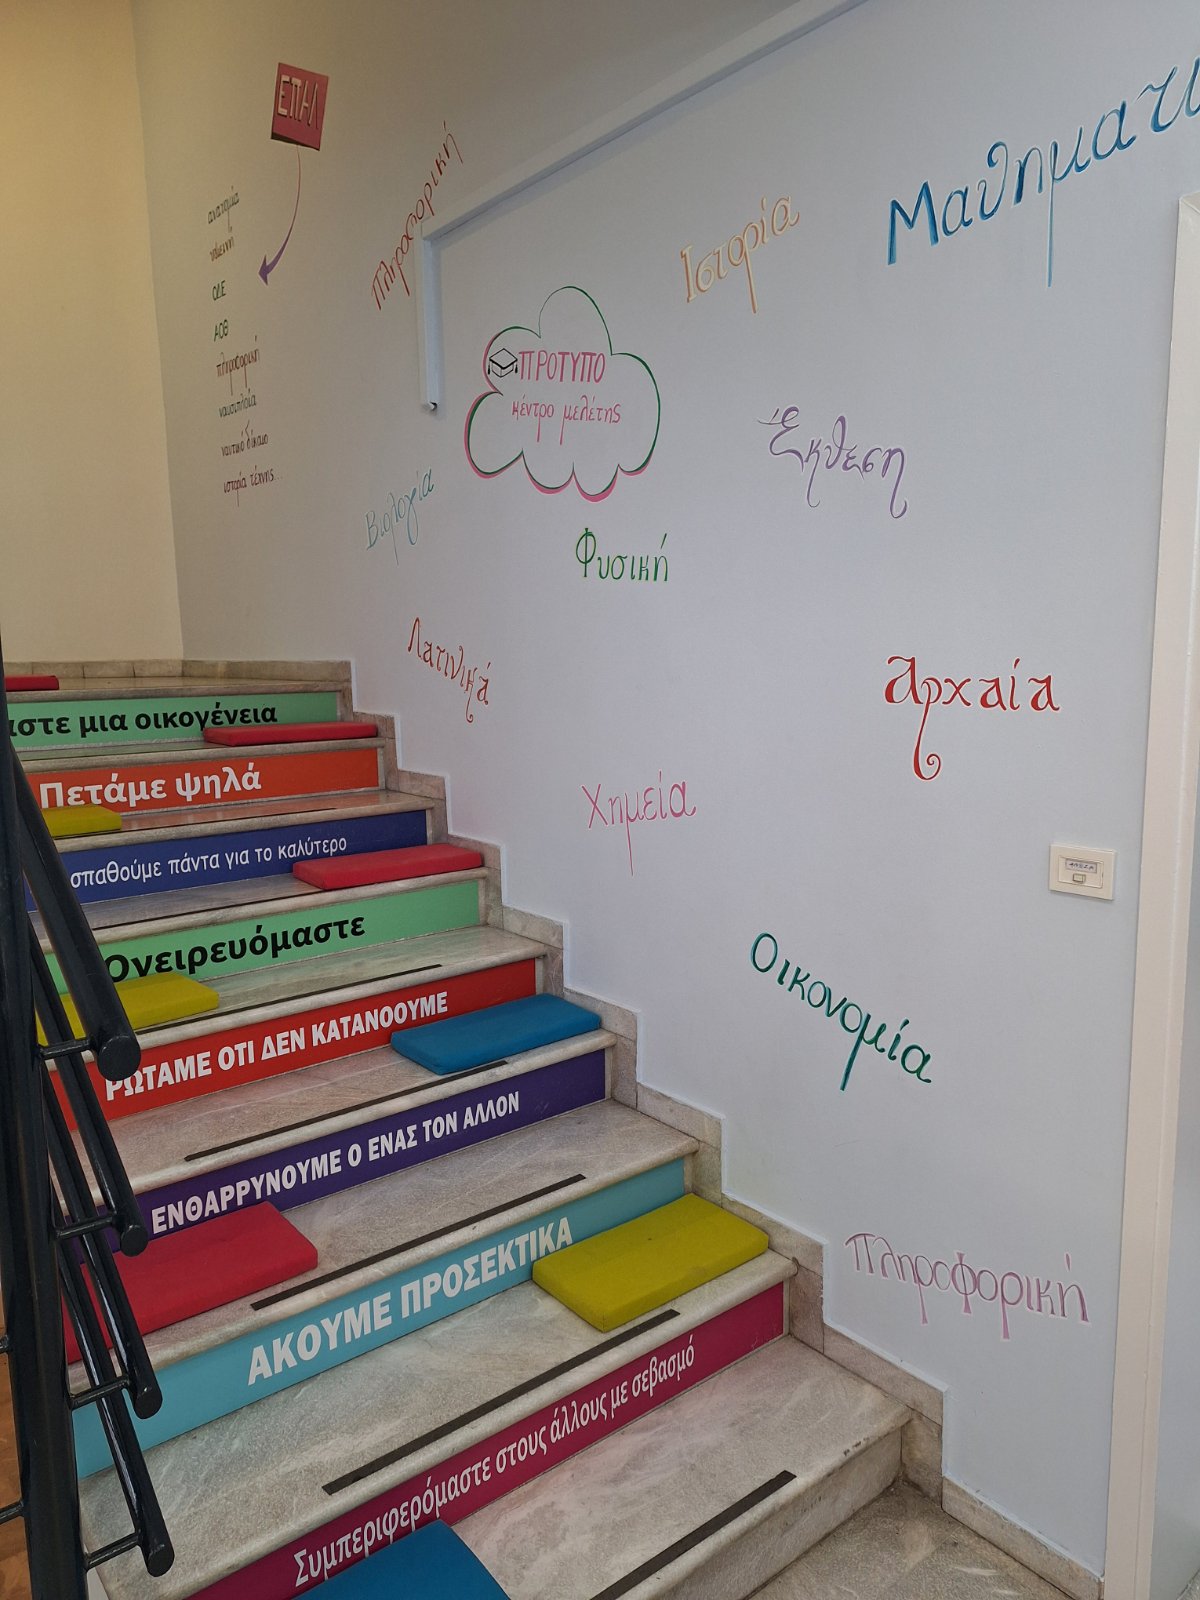 ΕΠΑΛ
ανατομία
ΟΔΕ
ΑΟΘ
πληροφορική
ναυσιπλοΐα
ναυτικό δίκαιο
ιστορία τέχνης...
Πληροφορική
Ιστορία
Μαθηματι
ΠΡΟΤΥΠΟ
κέντρο μελέτης
Έκθεση
Βιολογία
Φυσική
Λατινικά
Αρχαία
Χημεία
Οικονομία
Πληροφορική
αστε μια οικογένεια
Πετάμε ψηλά
σπαθούμε πάντα για το καλύτερο
Ονειρευόμαστε
ΡΩΤΑΜΕ ΟΤΙ ΔΕΝ ΚΑΤΑΝΟΟΥΜΕ
ΕΝΘΑΡΡΥΝΟΥΜΕ Ο ΕΝΑΣ ΤΟΝ ΑΛΛΟΝ
ΑΚΟΥΜΕ ΠΡΟΣΕΚΤΙΚΑ
Συμπεριφερόμαστε στους άλλους με σεβασμό